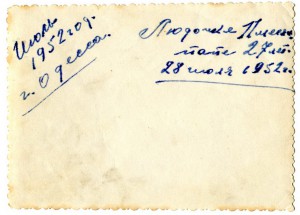 Июль
1952 год.
г. Одесса.
Людочке
папе 27 лет
28 июля 1952г.